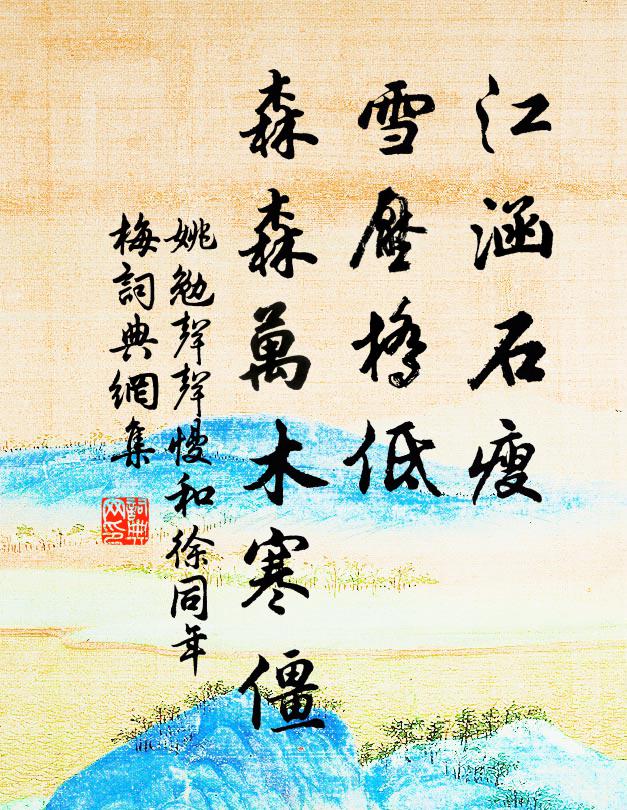 江涵石瘦
雪壓橋低
森森萬木寒僵
姚勉聲聲慢和徐同年
梅詞典網集
詞典